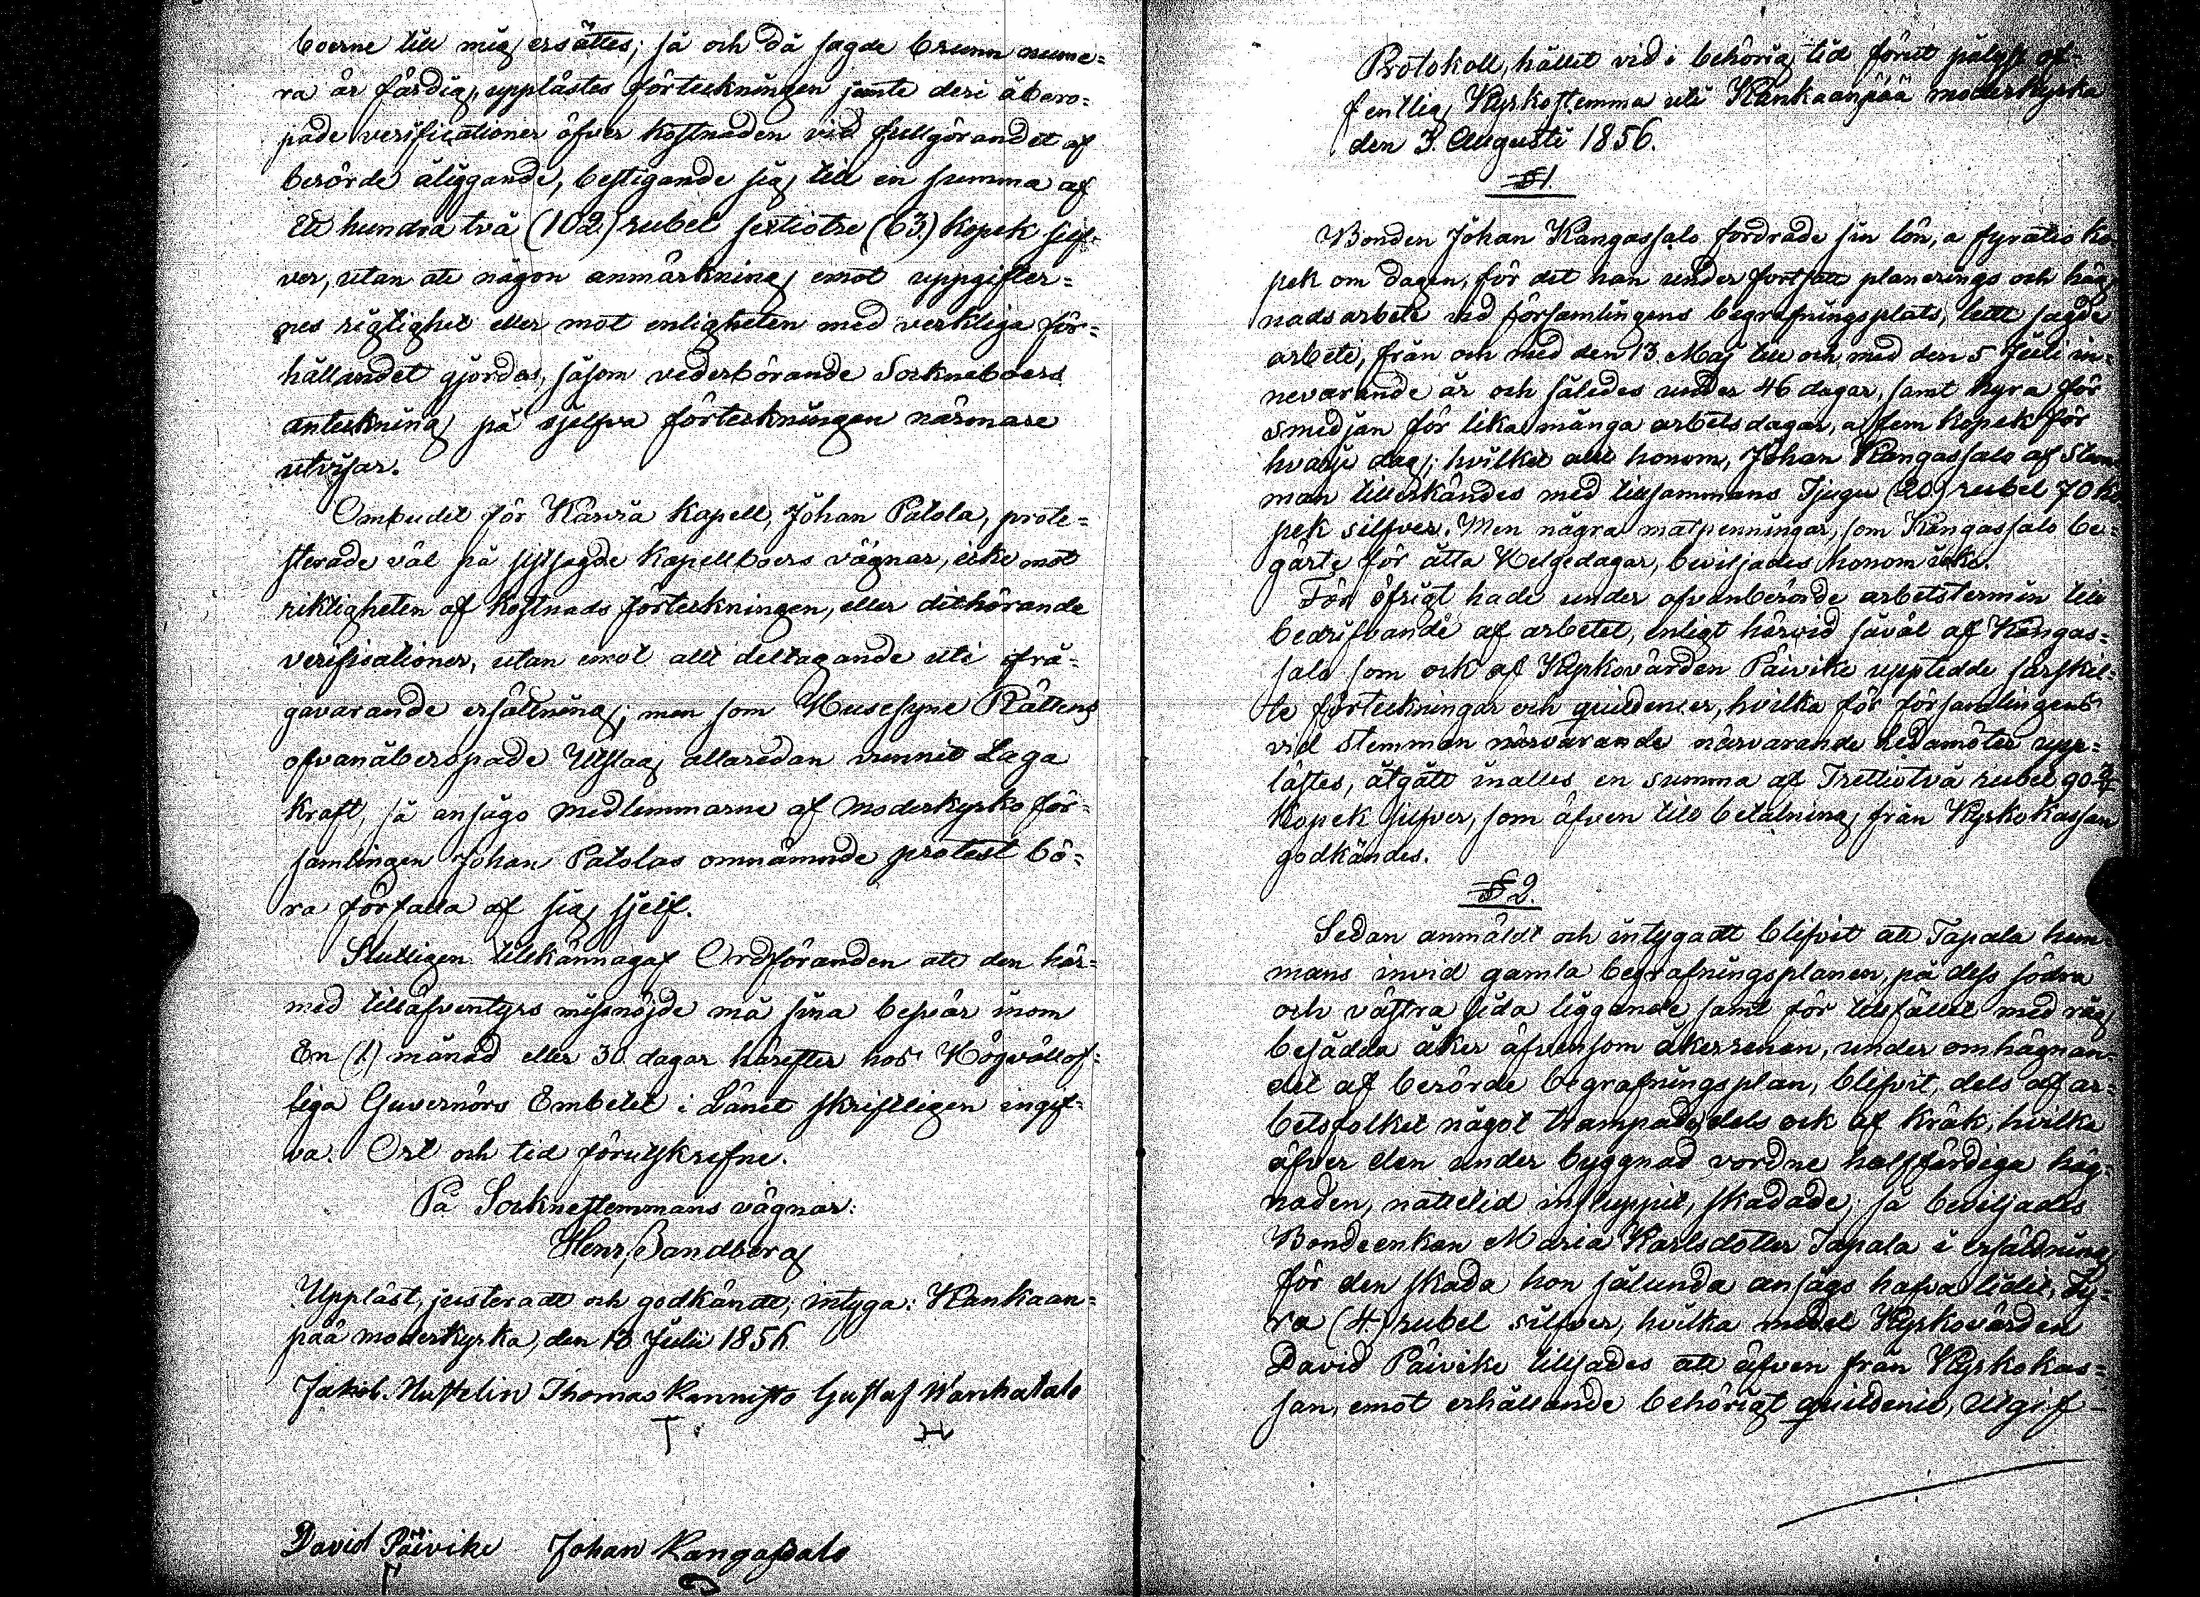 boerne till mig ersättes; så och då sagde brunn nume-
ra är färdig, upplästes förteckningen jemte deri åbero-
pade verificationer öfver kostnaden vid fullgörandet af
berörde åliggande, bestigande sig till en summa af
Ett hundra två (102.) rubel sextiotre (63.) kopek silf-
ver, utan att någon anmärkning emot uppgifter-
nes rigtighet eller mot enligheten med verkliga för-
hållandet gjordes, såsom vederbörande Sockneboers
anteckning på sjelfva förteckningen närmare
utvisar.
Ombudet för Karvia Kapell, Johan Patola, prote-
sterade väl på sistsagde Kapellboers vägnar, icke mot
riktigheten af kostnads förteckningen, eller dithörande
verificationer, utan emot allt deltagande uti ifrå-
gavarande ersättning; men som Husesyne Rättens
ofvanåberopade Utslag allaredan vunnit Laga
kraft, så ansågo medlemmarne af moderkyrko för-
samlingen Johan Patolas omnämnde protest bö-
ra förfalla af sig sjelf.
Slutligen tillkännagaf Ordföranden att den här-
med tilläfventyrs missnöjde må sina besvär inom
En (1.) månad eller 30 dagar härefter hos Högvällof-
liga Guvernörs Embetet i Länet skriftligen ingif-
va. Ort och tid förutskrefne.
På Sockenstemmans vägnar:
Henr. Sandberg
Uppläst, justeradt och godkändt, intyga: Kankaan-
pää moderkyrka, den 13 Juli 1856.
Jakob. Hustelin Thomas Kannisto Gustaf Wanhatalo
David Päivike Johan Kangassalo
Protokoll, hållet vid i behörig tid förut pålyst of-
fentlig Kyrkostemma uti Kankaanpää moderkyrka
den 3. Augusti 1856.
§ 1.
Bonden Johan Kangassalo fordrade sin lön, a fyratio ko-
pek om dagen, för det han under fortsatt planerings och häg-
nads arbete vid församlingens begrafningsplats, ledt sagde
arbete, från och med den 13. Maj till och med den 5 Juli in-
nevarande år och således under 46 dagar, samt hyra för
smedjan för lika många arbetsdagar, a fem kopek för
hvarje dag; hvilket allt honom, Johan Kangassalo af Stem-
man tillerkändes med tillsammans Tjugu (20.) rubel 70 ko-
pek silfver. Men några matpenningar, som Kangassalo be-
gärte för åtta Helgedagar, beviljades honom icke.
För öfrigt hade under ofvanberörde arbetstermin till
bedrifvande af arbetet, enligt härvid såväl af Kangas-
salo som ock af Kyrkovärden Päivike uppteedde särskil-
te förteckningar och quidencer, hvilka för församlingens
vid stemman närvarande närvarande ledamöter upp-
lästes, åtgått inalles en summa af Trettiotvå rubel 90
Kopek silfver, som äfven till betalning från Kyrkokassan
godkändes.
§ 2.
Sedan anmäldt och intygadt blifvit att Tapala hem-
mans invid gamla begrafningsplanen, på dess södra
och västra sida liggande samt för tillfället med råg
besådda åker äfvensom åkerrenen, under omhägnan-
det af berörde begrafningsplan, blifvit, dels af ar-
betsfolket något trampade, dels ock af kräk, hvilka
öfver den under byggnad vordne halffärdiga häg-
naden, nattetid insluppit, skadade; så beviljades
Bondeenkan Maria Karlsdotter Tapala i ersättning
för den skada hon sålunda ansågs hafva lidit, Fy-
ra (4.) rubel silfver, hvilka medel Kyrkovärden
David Päivike tillsades att äfven från Kyrkokas-
san, emot erhållande behörigt quidence, utgif-